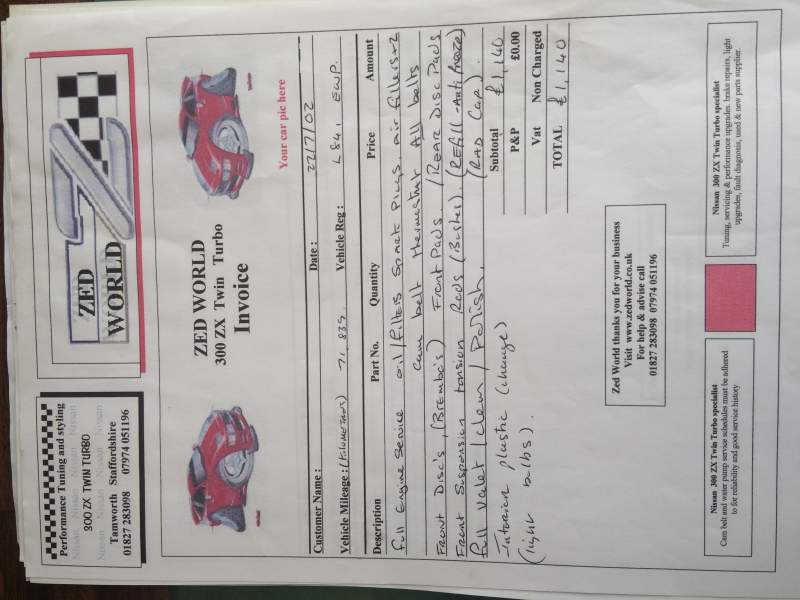 Performance Tuning and styling
Nissan Nissan Nissan Nissan
300 ZX TWIN TURBO
Nissan Nissan Nissan Nissan
Tamworth Staffordshire
01827 283098 07974 051196
ZED
WORLD
ZED WORLD
300 ZX Twin Turbo
Invoice
Your car pic here
Customer Name :
Date : 22/7/02
Vehicle Mileage : (Kilometers) 71,839
Vehicle Reg : L841 EWP.
Description Part No. Quantity Price Amount
Full Engine Service oil/filters Spark Plugs, air filters x2
Cam belt thermostat All belts
Front Disc's, (Brembo's) Front Pads, (Rear Disc Pads
Front Suspension tension Rods (Bushes). (Refill-Antifreeze)
Full Valet / clean / Polish. (Rad Cap).
Interior plastic (change)
(light bulbs).
Subtotal £1,140
P&P £0.00
Vat Non Charged
TOTAL £1,140
Zed World thanks you for your business
Visit www.zedworld.co.uk
For help & advise call
01827 283098 07974 051196
Nissan 300 ZX Twin Turbo specialist
Cam belt and water pump service schedules must be adhered
to for reliability and good service history
Nissan 300 ZX Twin Turbo specialist
Tuning, servicing & performance upgrades. brake repairs, light
upgrades, fault diagnosis, used & new parts supplier.